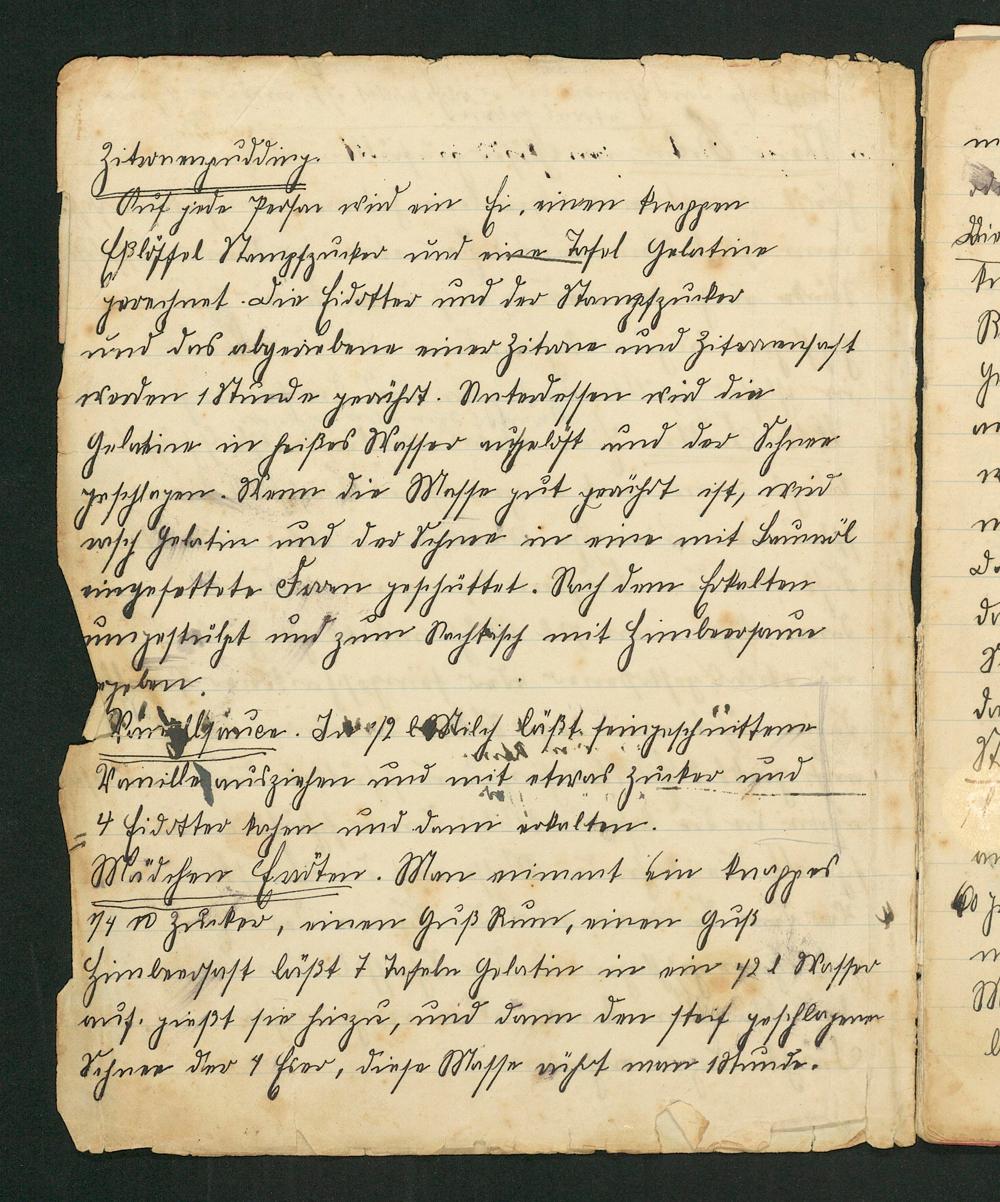 Zitronenpudding.
Auf jede Person wird ein Ei, einen knappen
Eßlöffel Stampfzucker und eine Tafel Gelatine
gerechnet. Die Eidotter und der Stampfzucker
und das abgeriebene einer Zitrone und Zitronensaft
werden 1 Stunde gerührt. Unterdessen wird die
Gelatine in heißes Wasser aufgelöst und der Schnee
geschlagen. Wenn die Masse gut gerührt ist, wird
rasch Gelatin und der Schnee in eine mit Baumöl
eingefettete Form geschüttet. Nach dem Erkalten
umgestülpt und zum Nachtisch mit Himbeersauce
egeben.
Vanillsauce. In 1/2 l Milch läßt feingeschnittene
Vanille ausziehen und mit etwas Zucker und
4 Eidotter kochen und dann erkalten.
Mädchen Erröten. Man nimmt ein knappes
1/4 ℔ Zucker, einen Guß Rum, einen Guß
Himbeersaft läßt 7 Tafeln Gelatin in ein 1/2 l Wasser
auf. gießt sie hinzu, und dann den steif geschlagenen
Schnee der 4 Eier, diese Masse rührt man 1 Stunde.